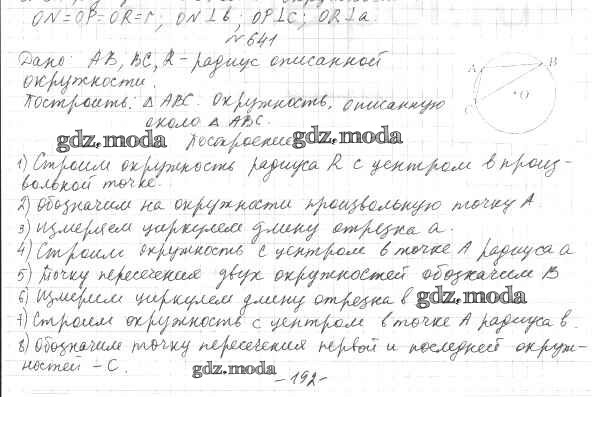 ON=OP=OR=r; ON⊥b; OP⊥c; OR⊥a.
№641
Дано: AB, BC, R - радиус описанной
окружности.
Построить: △ABC. окружность, описанную
около △ABC.
A
B
C
O
gdz.moda
Построение
gdz.moda
1) Строим окружность радиуса R с центром в произ-
вольной точке.
2) Обозначим на окружности произвольную точку A
3) Измеряем циркулем длину отрезка a.
4) Строим окружность с центром в точке A радиуса a
5) Точку пересечения двух окружностей обозначим B
6) Измерим циркулем длину отрезка в
gdz.moda
7) Строим окружность с центром в точке A радиуса в.
8) Обозначим точку пересечения первой и последней окруж-
ностей - C.
gdz.moda
-192-